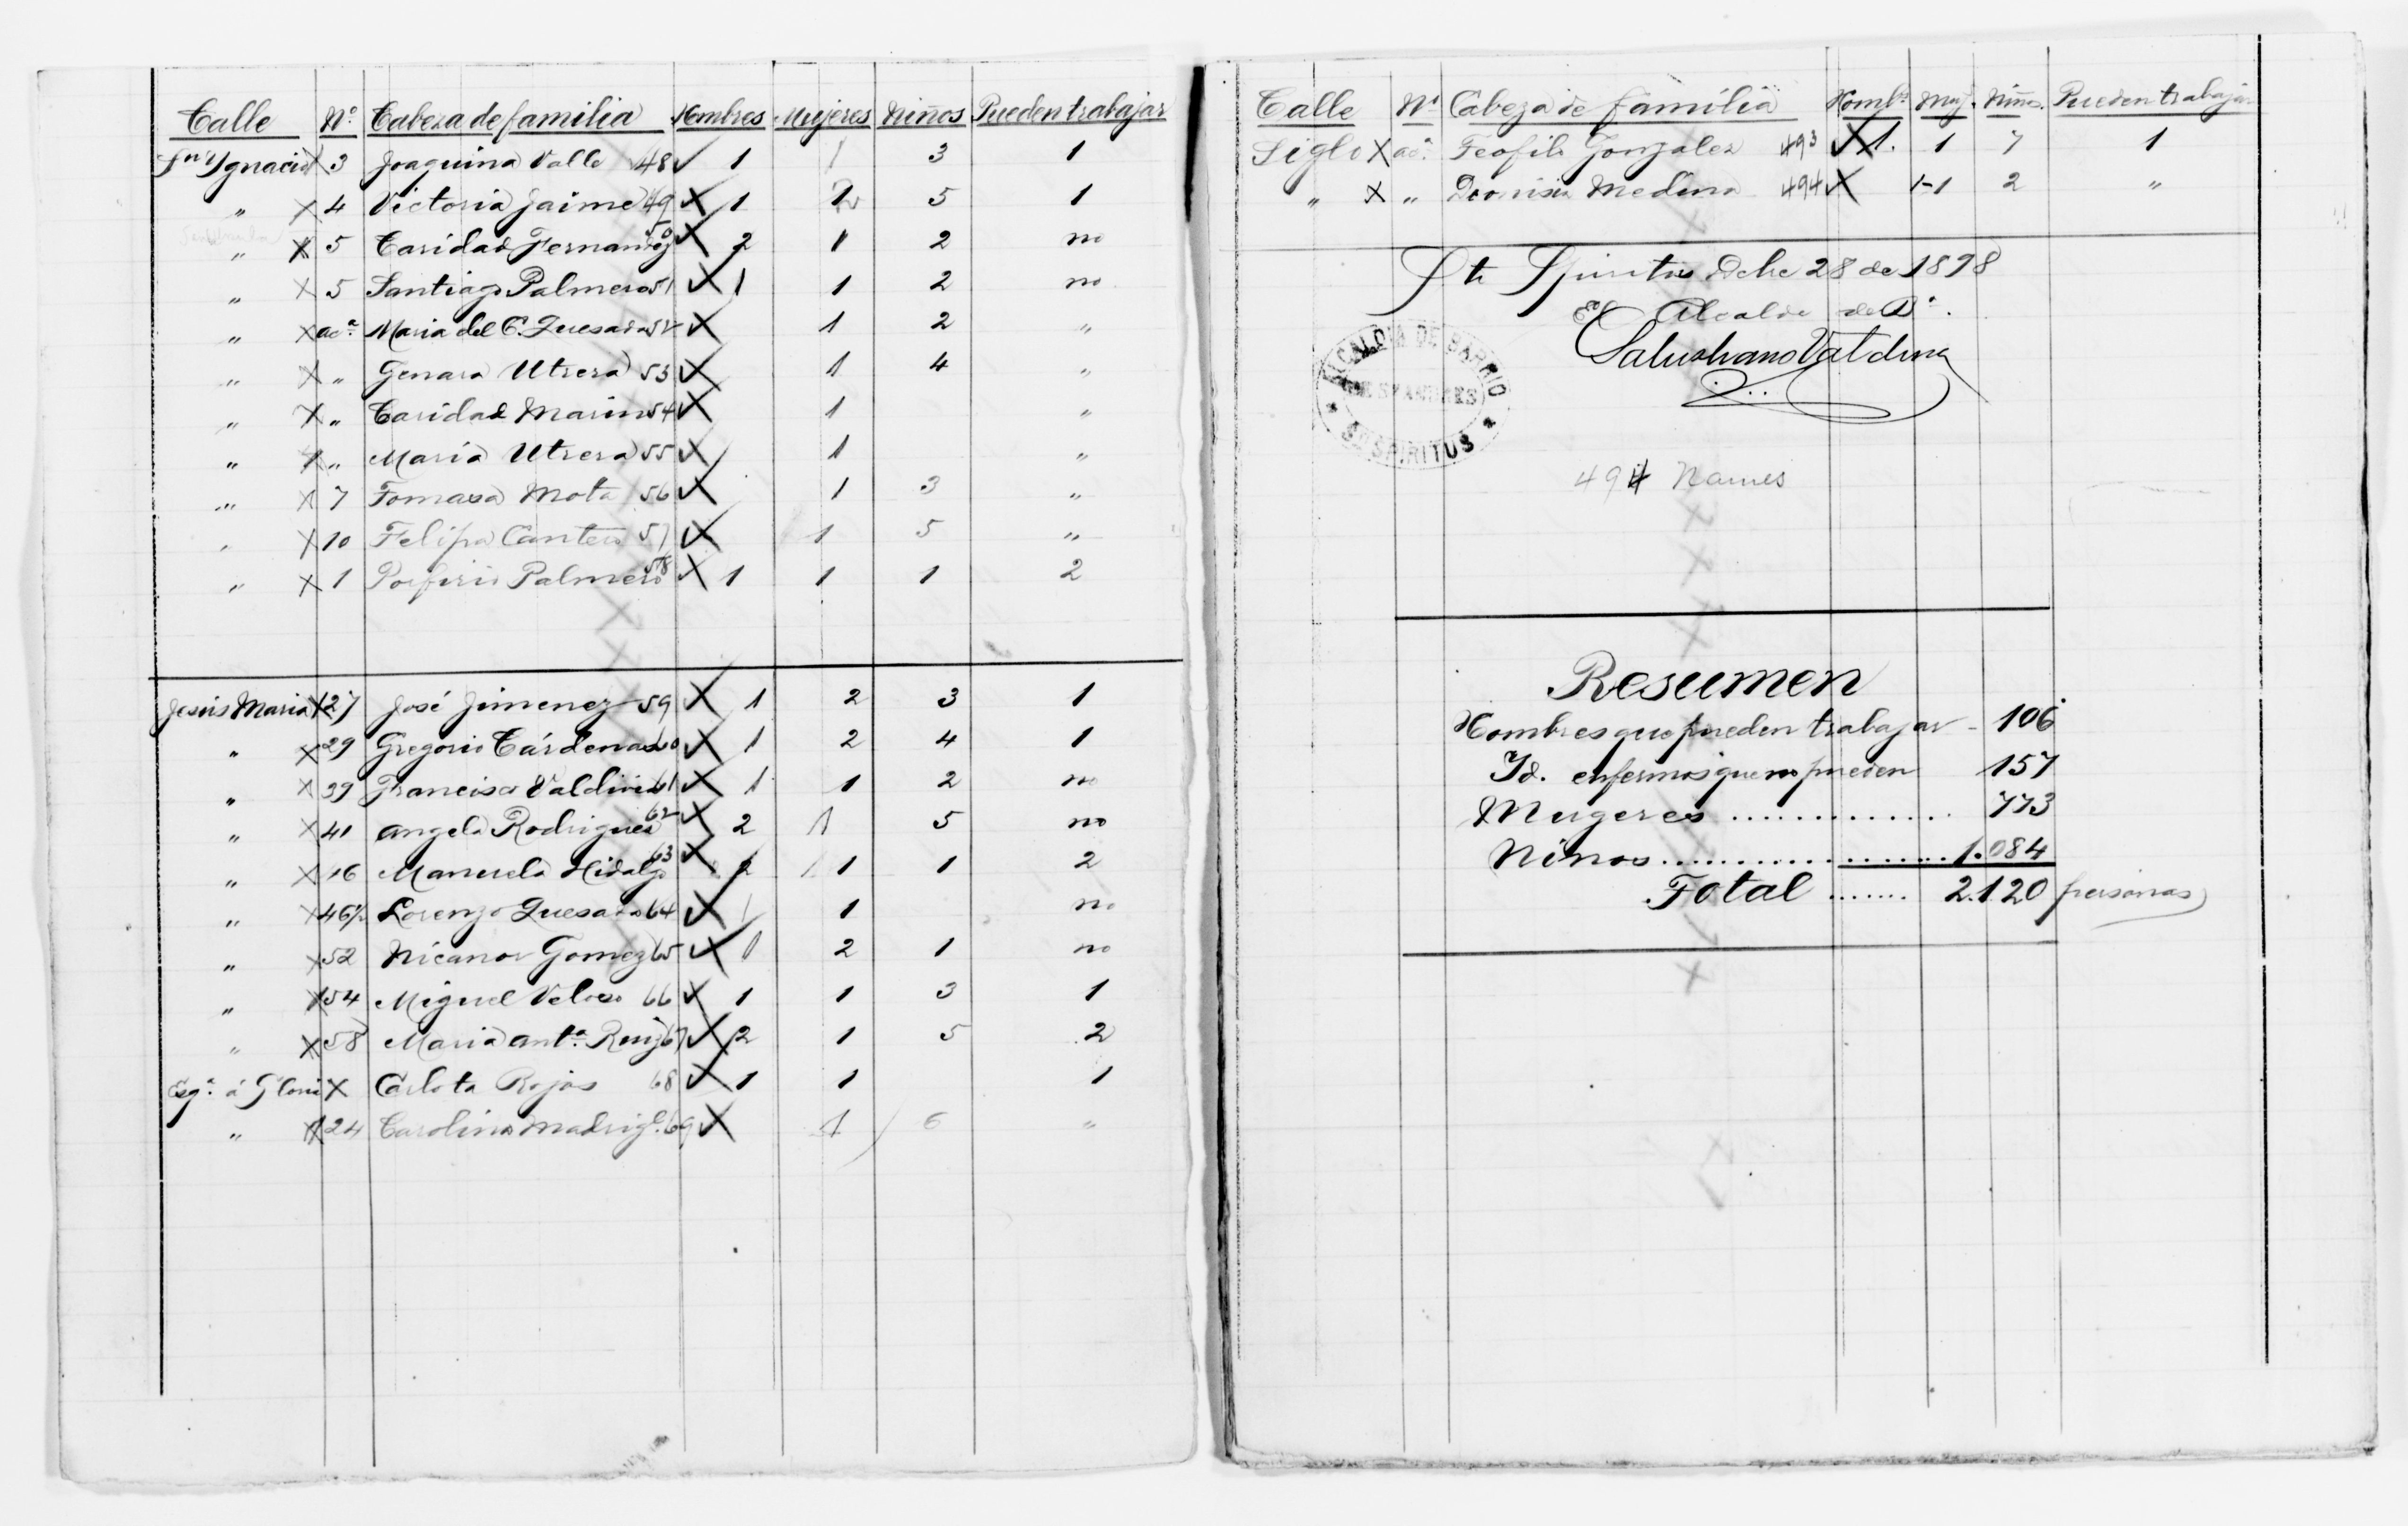 Calle Nº Cabeza de familia Hombres Mujeres Niños Pueden trabajar
Sn Ygnacio X 3 Joaquina Valle 48 ✓ 1 1 3 1
" X 4 Victoria Jaime 49 X 1 2 5 1
" X 5 Caridad Fernandez 50 X 2 1 2 no
" X 5 Santiago Palmero 51 X 1 1 2 no
" X acª Maria del C. Quesada 52 X 1 2 "
" X " Genara Utrera 53 X 1 4 "
" X " Caridad Marin 54 X 1 "
" X " Maria Utrera 55 X 1 "
" X 7 Tomasa Mota 56 X 1 3 "
" X 10 Felipa Cantero 57 X 1 5 "
" X 1 Porfirio Palmero 58 X 1 1 1 2
Jesús Maria X 27 José Jimenez 59 X 1 2 3 1
" X 29 Gregorio Cárdenas 60 X 1 2 4 1
" X 39 Francisca Valdivia 61 X 1 1 2 no
" X 41 Angela Rodrigues 62 X 2 1 5 no
" X 46 Manuela Hidalgo 63 X 2 1 1 2
" X 46½ Lorenzo Quesada 64 X 1 1 no
" X 52 Nicanor Gomez 65 X 1 2 1 no
" X 54 Miguel Veloso 66 X 1 1 3 1
" X 58 Maria Antª Ruiz 67 X 2 1 5 2
Esqª á Gloria X Carlota Rojas 68 X 1 1 1
" X 24 Carolina Madrigl. 69 X 1 6 "
Calle Nº Cabeza de familia Hombs Muj. Niños. Pueden trabajar
Siglo X acª Teofilo Gonzalez 493 X 1. 1 7 1
" X " Dionisia Medina 494 X 1-1 2 "
Sti Spiritus Dcbe 28 de 1898
El Alcalde de Bº.
Salustiano Valdivia
ALCALDIA DE BARRIO
SO SPIRITUS
494 Names
Resumen
Hombres que pueden trabajar - 106
Id. enfermos que no pueden 157
Mugeres ............. 773
Niños .................. 1.084
Total ....... 2.120 personas